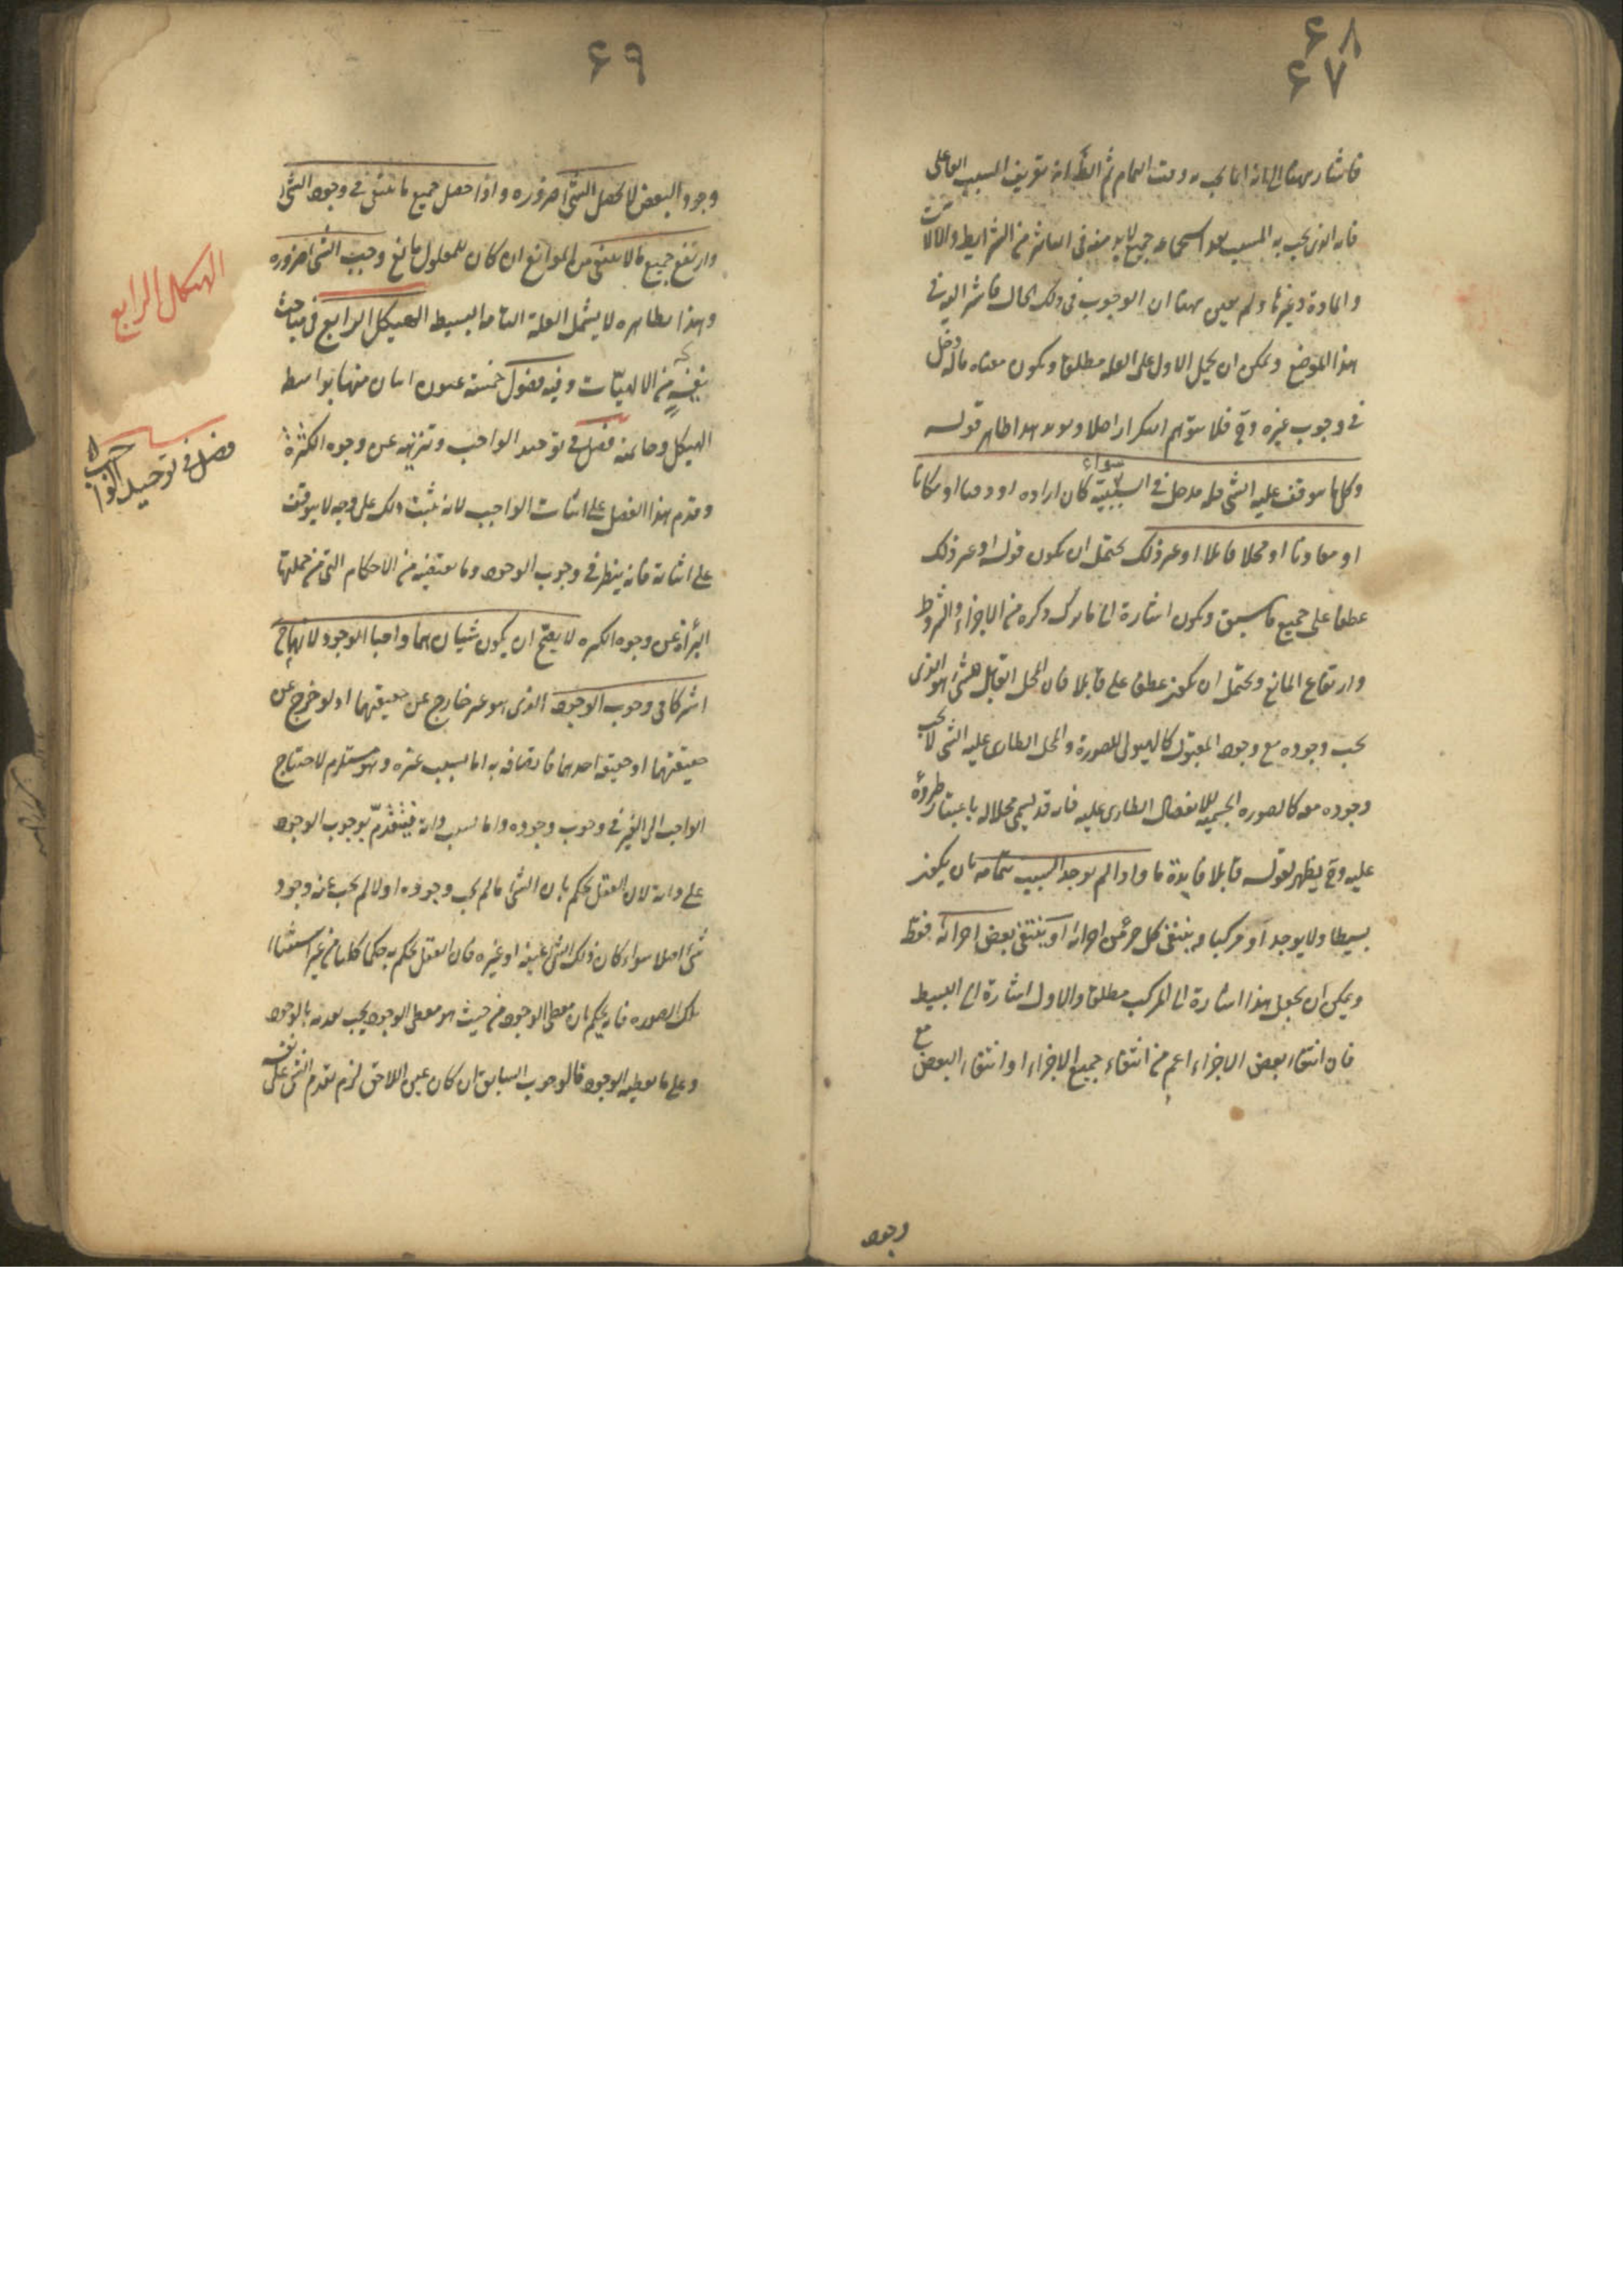 ۶۸
۶۷
فاشار ههنا الى انه انما يجب به وقت التمام ثم الظ انه تعريف السبب الفاعلى
فانه الذى يجب به المسبب بعد استجماعه جميع لابد منه فى التاثير من الشرايط والالات
والمادة وغيرها ولم يعين ههنا ان الوجوب فى ذلك الحال
هذا الموضع ويمكن ان يحمل الاول على العلة مطلقا ويكون معناه ماله دخل
فى وجوب غيره وح فلا يتوهم التكرار اصلا هذا ظاهر قوله
وكل ما يتوقف عليه الشى فله مدخل فى السببية سواء كان ارادة او وقتا او مكانا
او معاونا او محلا قابلا او غير ذلك يحتمل ان يكون قوله او غير ذلك
عطفا على جميع ما سبق ويكون اشارة الى ما ترك ذكره من الاجزاء والشروط
وارتفاع المانع ويحتمل ان يكون عطفا على قابلا فان المحل القابل للشى هو الذى
يجب وجوده مع وجود المقبول كالهيولى للصورة والمحل الطارى عليه الشى لا يجب
وجوده معه كالصورة الجسمية للانفصال الطارى عليه فانه قد يسمى محلا له باعتبار طروه
عليه وح يظهر لقوله قابلا فايدة ما واذا لم يوجد السبب بتمامه بان يكون
بسيطا ولا يوجد او مركبا وينتفى كل جزء من اجزائه او ينتفى بعض اجزائه فقط
ويمكن ان يجعل هذا اشارة الى المركب مطلقا والاول اشارة الى البسيط
فان انتفاء بعض الاجزاء اعم من انتفاء جميع الاجزاء او انتفاء البعض مع
وجود
۶۹
وجود البعض لا يحصل الشى ضرورة واذا حصل جميع ما ينبغى فى وجود الشى
وارتفع جميع ما لا ينبغى من الموانع ان كان للمعلول مانع وجب الشى ضرورة
وهذا بظاهره لا يشمل العلة التامة البسيطة الهيكل الرابع فى مباحث
نفيسة من الالهيات وفيه فصول خمسة
الهيكل وخاتمته فصل فى توحيد الواجب وتنزيهه عن وجوه الكثرة
وقدم هذا الفصل على اثبات الواجب لانه يثبت ذلك على وجه لا يتوقف
على اثباته فانه ينظر فى وجوب الوجود وما يقتضيه من الاحكام التى من جملتها
البرأة عن وجوه الكثرة لا يصح ان يكون شيئان هما واجبا الوجود لانهما ح
اشتركا فى وجوب الوجود الذى هو غير خارج عن حقيقتهما اذ لو خرج عن
حقيقتهما او حقيقة احدهما فاتصافه به اما بسبب غيره وهو مستلزم لاحتياج
الواجب الى الغير فى وجوب وجوده واما بسبب ذاته فيتقدم بوجوب الوجود
على ذاته لان العقل يحكم بان الشى ما لم يجب وجوده اولا لم يجب عنه وجود
شى اصلا سواء كان ذلك الشى عينه او غيره فان العقل يحكم به حكما كليا من غير استثناء
تلك الصورة فانه يحكم بان معطى الوجود من حيث هو معطى الوجود يجب تقدمه بالوجود
وعلى ما يعطيه الوجود فالوجوب السابق ان كان عين اللاحق لزم تقدم الشى على نفسه
الهيكل الرابع
فصل فى توحيد الواجب